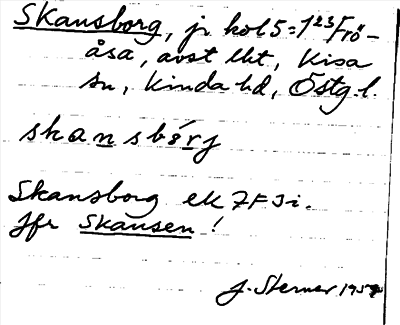 Skansborg, jr kol 5:1²³ Frö-
åsa, avst lht, Kisa
sn, Kinda hd, Östg. l.
skansbǫrj
Skansborg ek 7F3i.
Jfr Skansen!
J. Sterner 195